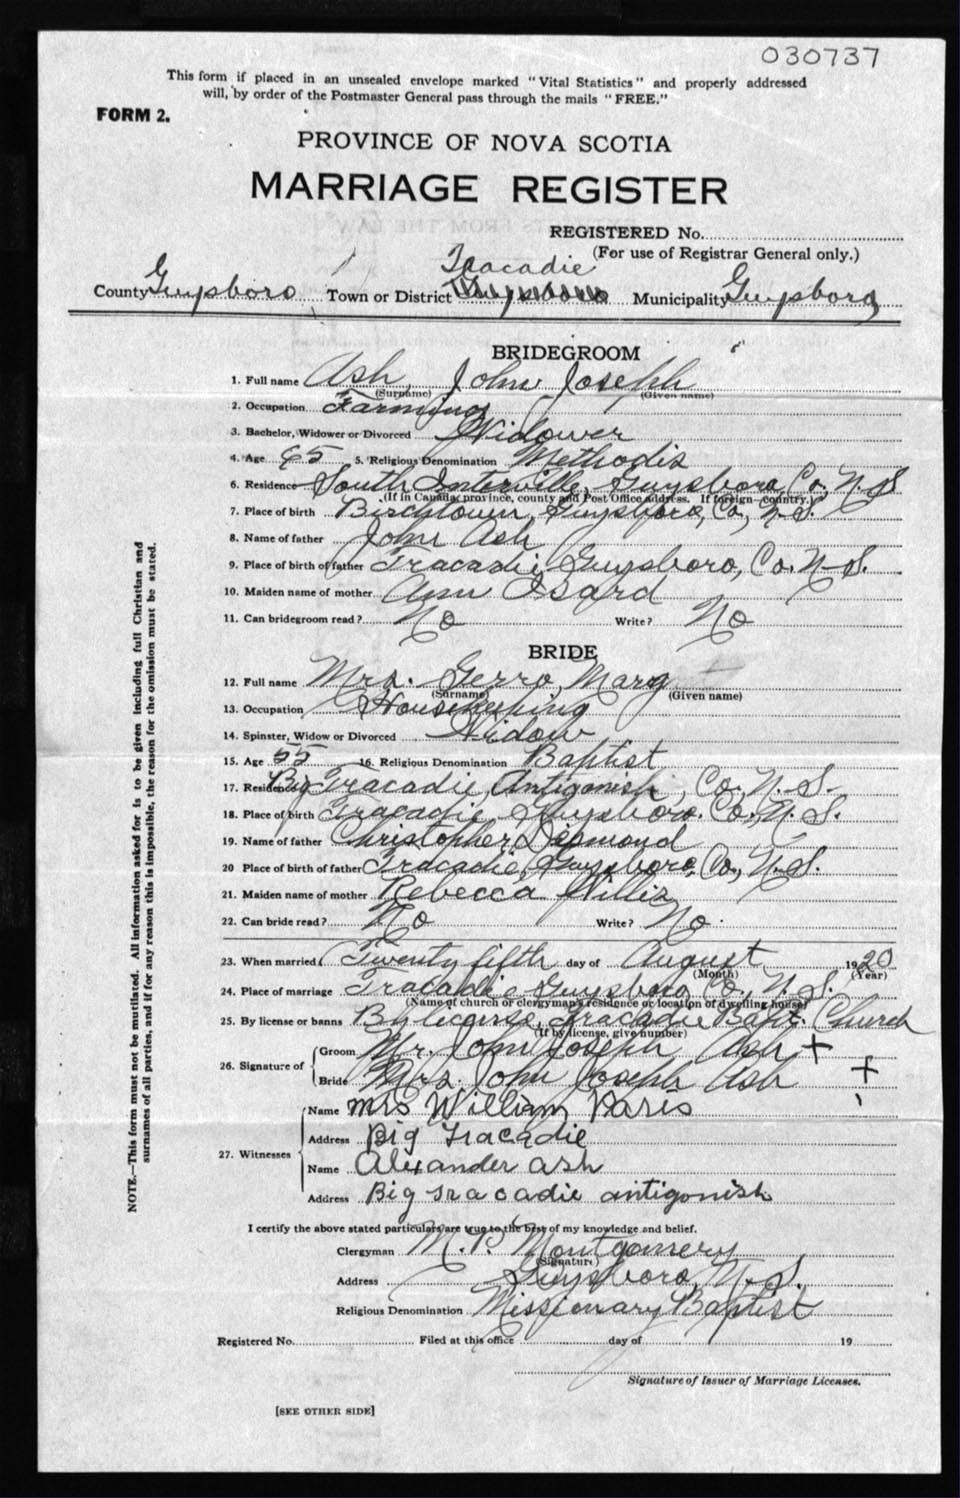 030737
This form if placed in an unsealed envelope marked "Vital Statistics" and properly addressed
will, by order of the Postmaster General pass through the mails "FREE."
FORM 2.
PROVINCE OF NOVA SCOTIA
MARRIAGE REGISTER
REGISTERED No.
(For use of Registrar General only.)
Tracadie
County Guysboro Town or District Guysboro Municipality Guysboro
BRIDEGROOM
1. Full name Ash, John Joseph
(Surname) (Given name)
2. Occupation Farming
3. Bachelor, Widower or Divorced Widower
4. Age 65 5. Religious Denomination Methodis
6. Residence South Interville, Guysboro, Co, N.S
(If in Canada, province, county and Post Office address. If foreign—country.)
7. Place of birth Birchtown, Guysboro, Co, N.S.
8. Name of father John Ash
9. Place of birth of father Tracadie, Guysboro, Co. N.S.
10. Maiden name of mother Ann Isard
11. Can bridegroom read? No Write? No
BRIDE
12. Full name Mrs. Gerro, Mary
(Surname) (Given name)
13. Occupation Housekeeping
14. Spinster, Widow or Divorced Widow
15. Age 55 16. Religious Denomination Baptist
17. Residence Big Tracadie, Antigonish, Co. N.S.
18. Place of birth Tracadie, Guysboro. Co., N.S.
19. Name of father Christopher Desmond
20 Place of birth of father Tracadie, Guysboro, Co, N.S.
21. Maiden name of mother Rebecca Willis
22. Can bride read? No Write? No.
23. When married Twenty fifth day of August 1920
(Month) (Year)
24. Place of marriage Tracadie Guysboro Co., N.S.
(Name of church or clergyman's residence or location of dwelling house)
25. By license or banns By license, Tracadie Bapt. Church
(If by license, give number)
26. Signature of
Groom Mr. John Joseph Ash +
Bride Mrs. John Joseph Ash +
27. Witnesses
Name Mrs William Paris
Address Big Tracadie
Name Alexander ash
Address Big Tracadie antigonish
I certify the above stated particulars are true to the best of my knowledge and belief.
Clergyman M. P. Montgomery
(Signature)
Address Guysboro, N.S.
Religious Denomination Missionary Baptist
Registered No. Filed at this office day of 19
Signature of Issuer of Marriage Licenses.
[SEE OTHER SIDE]
NOTE.—This form must not be mutilated. All information asked for is to be given including full Christian and
surnames of all parties, and if for any reason this is impossible, the reason for the omission must be stated.